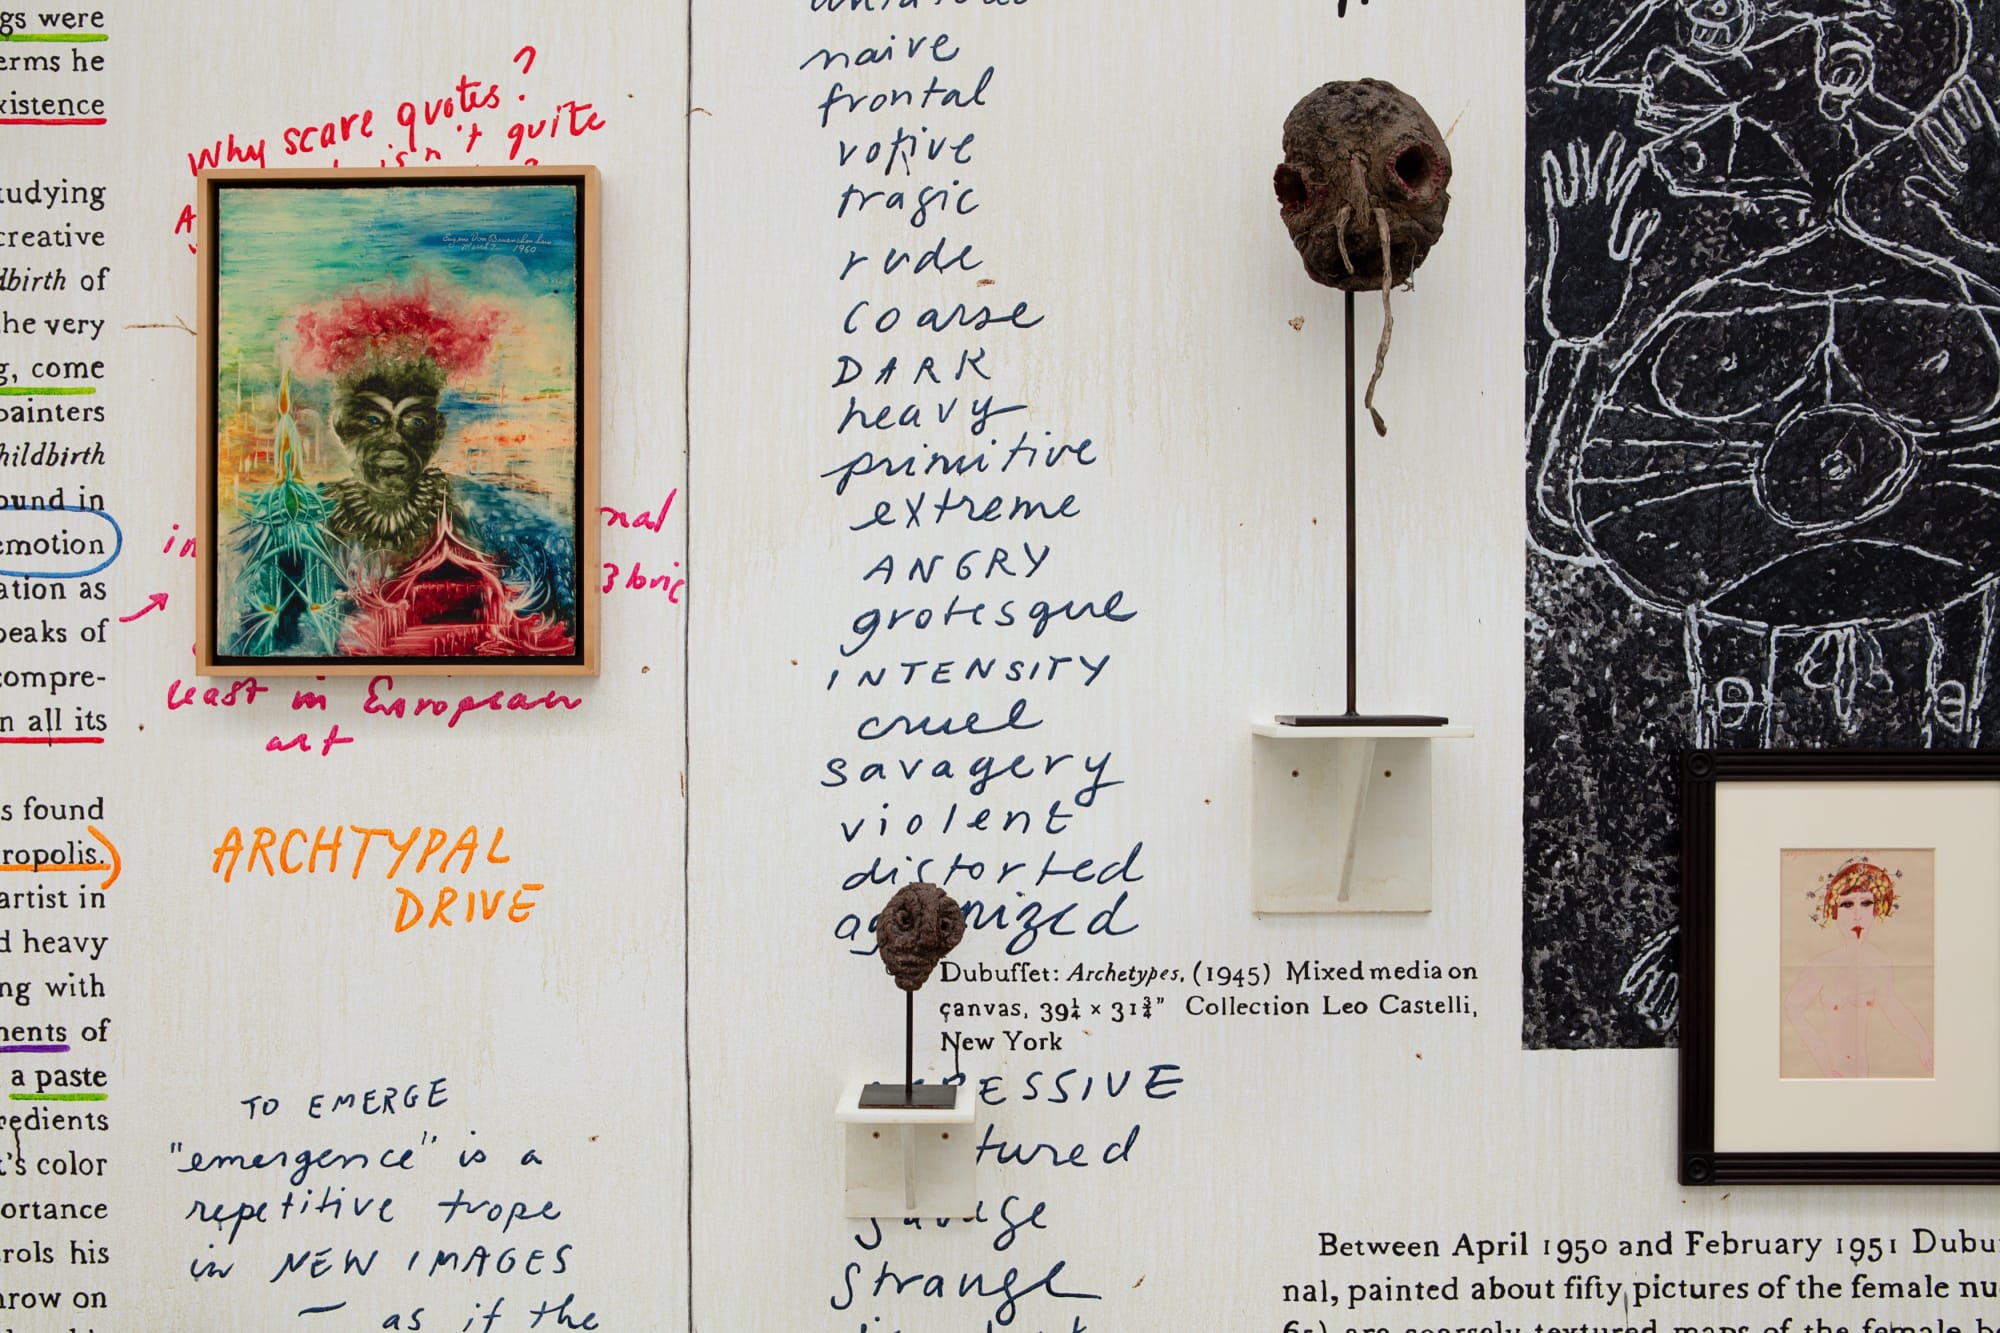 gs were
erms he
xistence
tudying
creative
dbirth of
he very
g, come
painters
hildbirth
ound in
emotion
ation as
peaks of
compre-
n all its
s found
ropolis.
artist in
d heavy
ng with
ments of
a paste
redients
's color
ortance
rols his
hrow on
Why scare quotes?
isn't quite
A
Eugene Von Bruenchenhein
March 7 1960
in
nal
least in European
art
ARCHTYPAL
DRIVE
TO EMERGE
"emergence" is a
repetitive trope
in NEW IMAGES
— as if the
naive
frontal
votive
tragic
rude
coarse
DARK
heavy
primitive
extreme
ANGRY
grotesque
INTENSITY
cruel
savagery
violent
distorted
ag nized
Dubuffet: Archetypes, (1945) Mixed media on
canvas, 39¼ × 31¾" Collection Leo Castelli,
New York
RESSIVE
tured
savage
strange
Between April 1950 and February 1951 Dubu
nal, painted about fifty pictures of the female nu
65) are coarsely textured maps of the female b